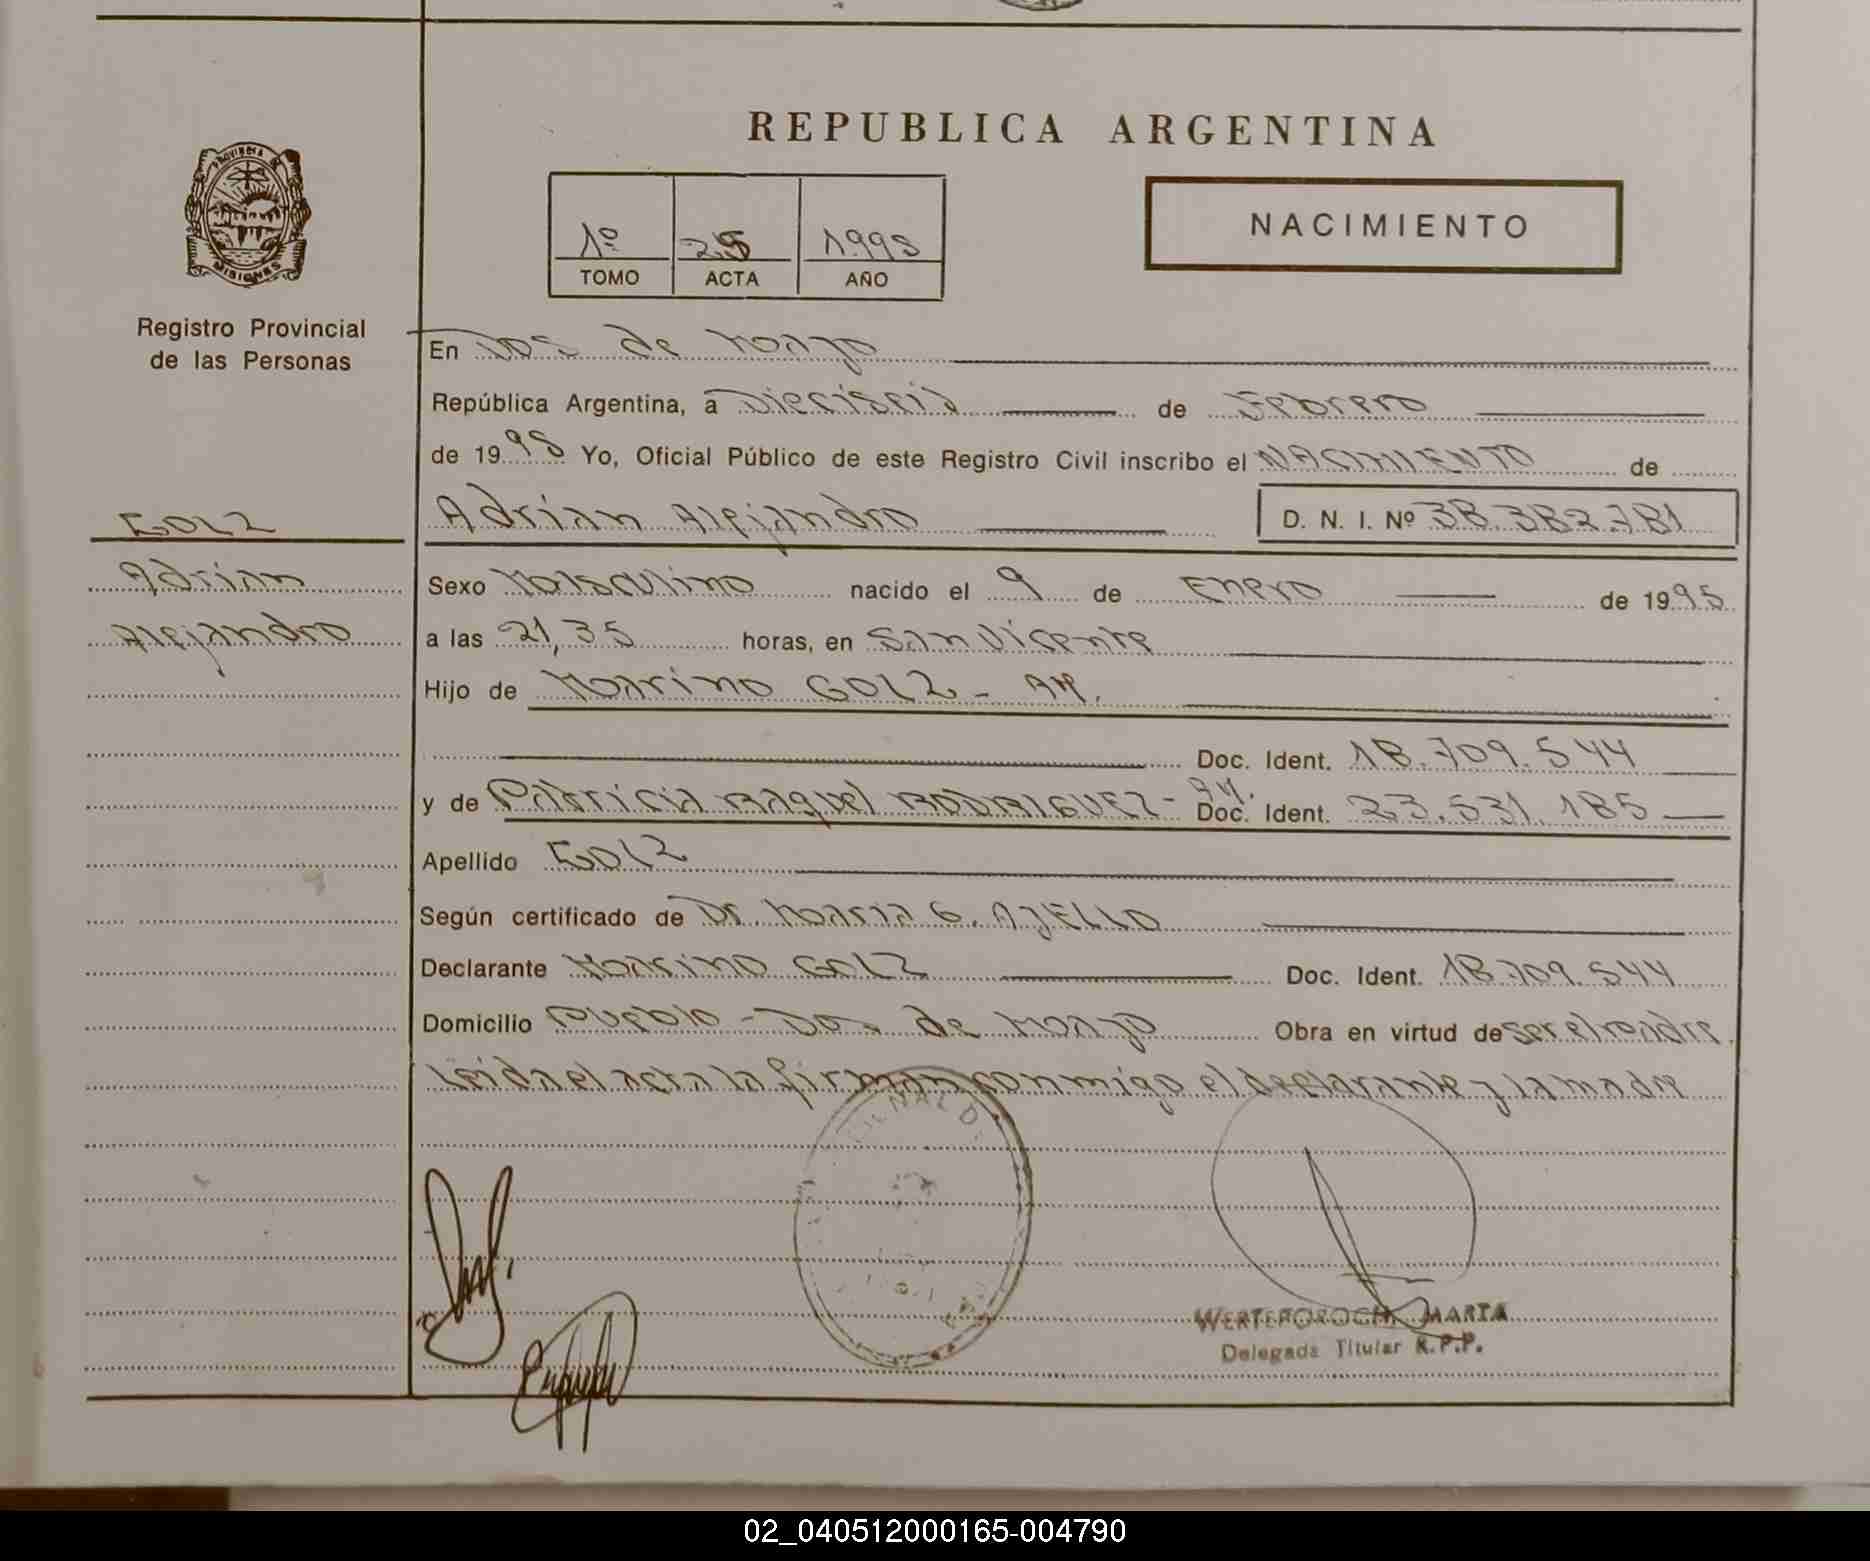 REPUBLICA ARGENTINA
PROVINCIA DE
MISIONES
Registro Provincial
de las Personas
1º 1995
TOMO ACTA AÑO
NACIMIENTO
En Dos de Marzo
República Argentina, a Dieciseis de Febrero
de 1995 Yo, Oficial Público de este Registro Civil inscribo el NACIMIENTO de
GOLZ
Adrian Alejandro D. N. I. Nº 38.382.781
Adrian
Sexo Masculino nacido el 9 de Enero de 1995
Alejandro
a las 21,35 horas, en San Vicente
Hijo de Marino GOLZ - AM.
Doc. Ident. 18.709.544
y de Patricia Raquel RODRIGUEZ - AM. Doc. Ident. 23.531.185
Apellido GOLZ
Según certificado de Dr. Maria G. AJELLO
Declarante Marino GOLZ Doc. Ident. 18.709.544
Domicilio Pueblo - Dos de Marzo Obra en virtud de ser el padre.
Leida el acta la firman conmigo el declarante y la madre
MARTA
Delegada Titular R.P.P.
02_040512000165-004790